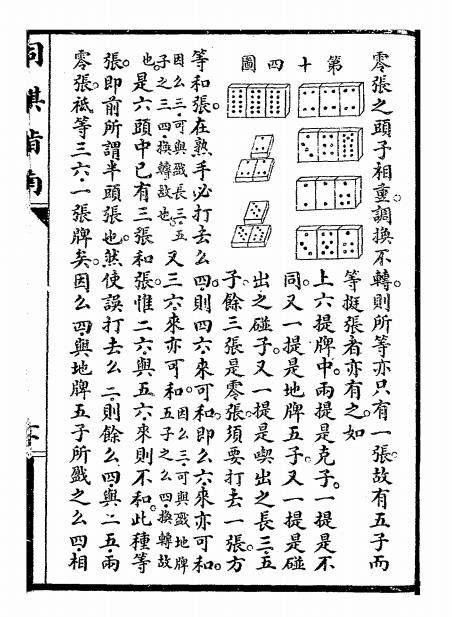 零張之頭子相重調換不轉則所等亦只有一張故有五子而
等挺張者亦有之如
第十四圖
上六提牌中兩提是克子一提是不
同又一提是地牌五子又一提是碰
出之碰子又一提是喫出之長三五
子餘三張是零張須要打去一張方
等和張在熟手必打去么四則四六來可和即么六來亦可和
因么三可與戳長三五
子之三四換轉故也
又三六來亦可和
因么三可與戳地牌
五子之么四換轉故
也是六頭中已有三張和張惟二六與五六來則不和此種等
張即前所謂半頭張也然使誤打去么二則餘么四與二五兩
零張祇等三六一張牌矣因么四與地牌五子所戳之么四相
棋指南